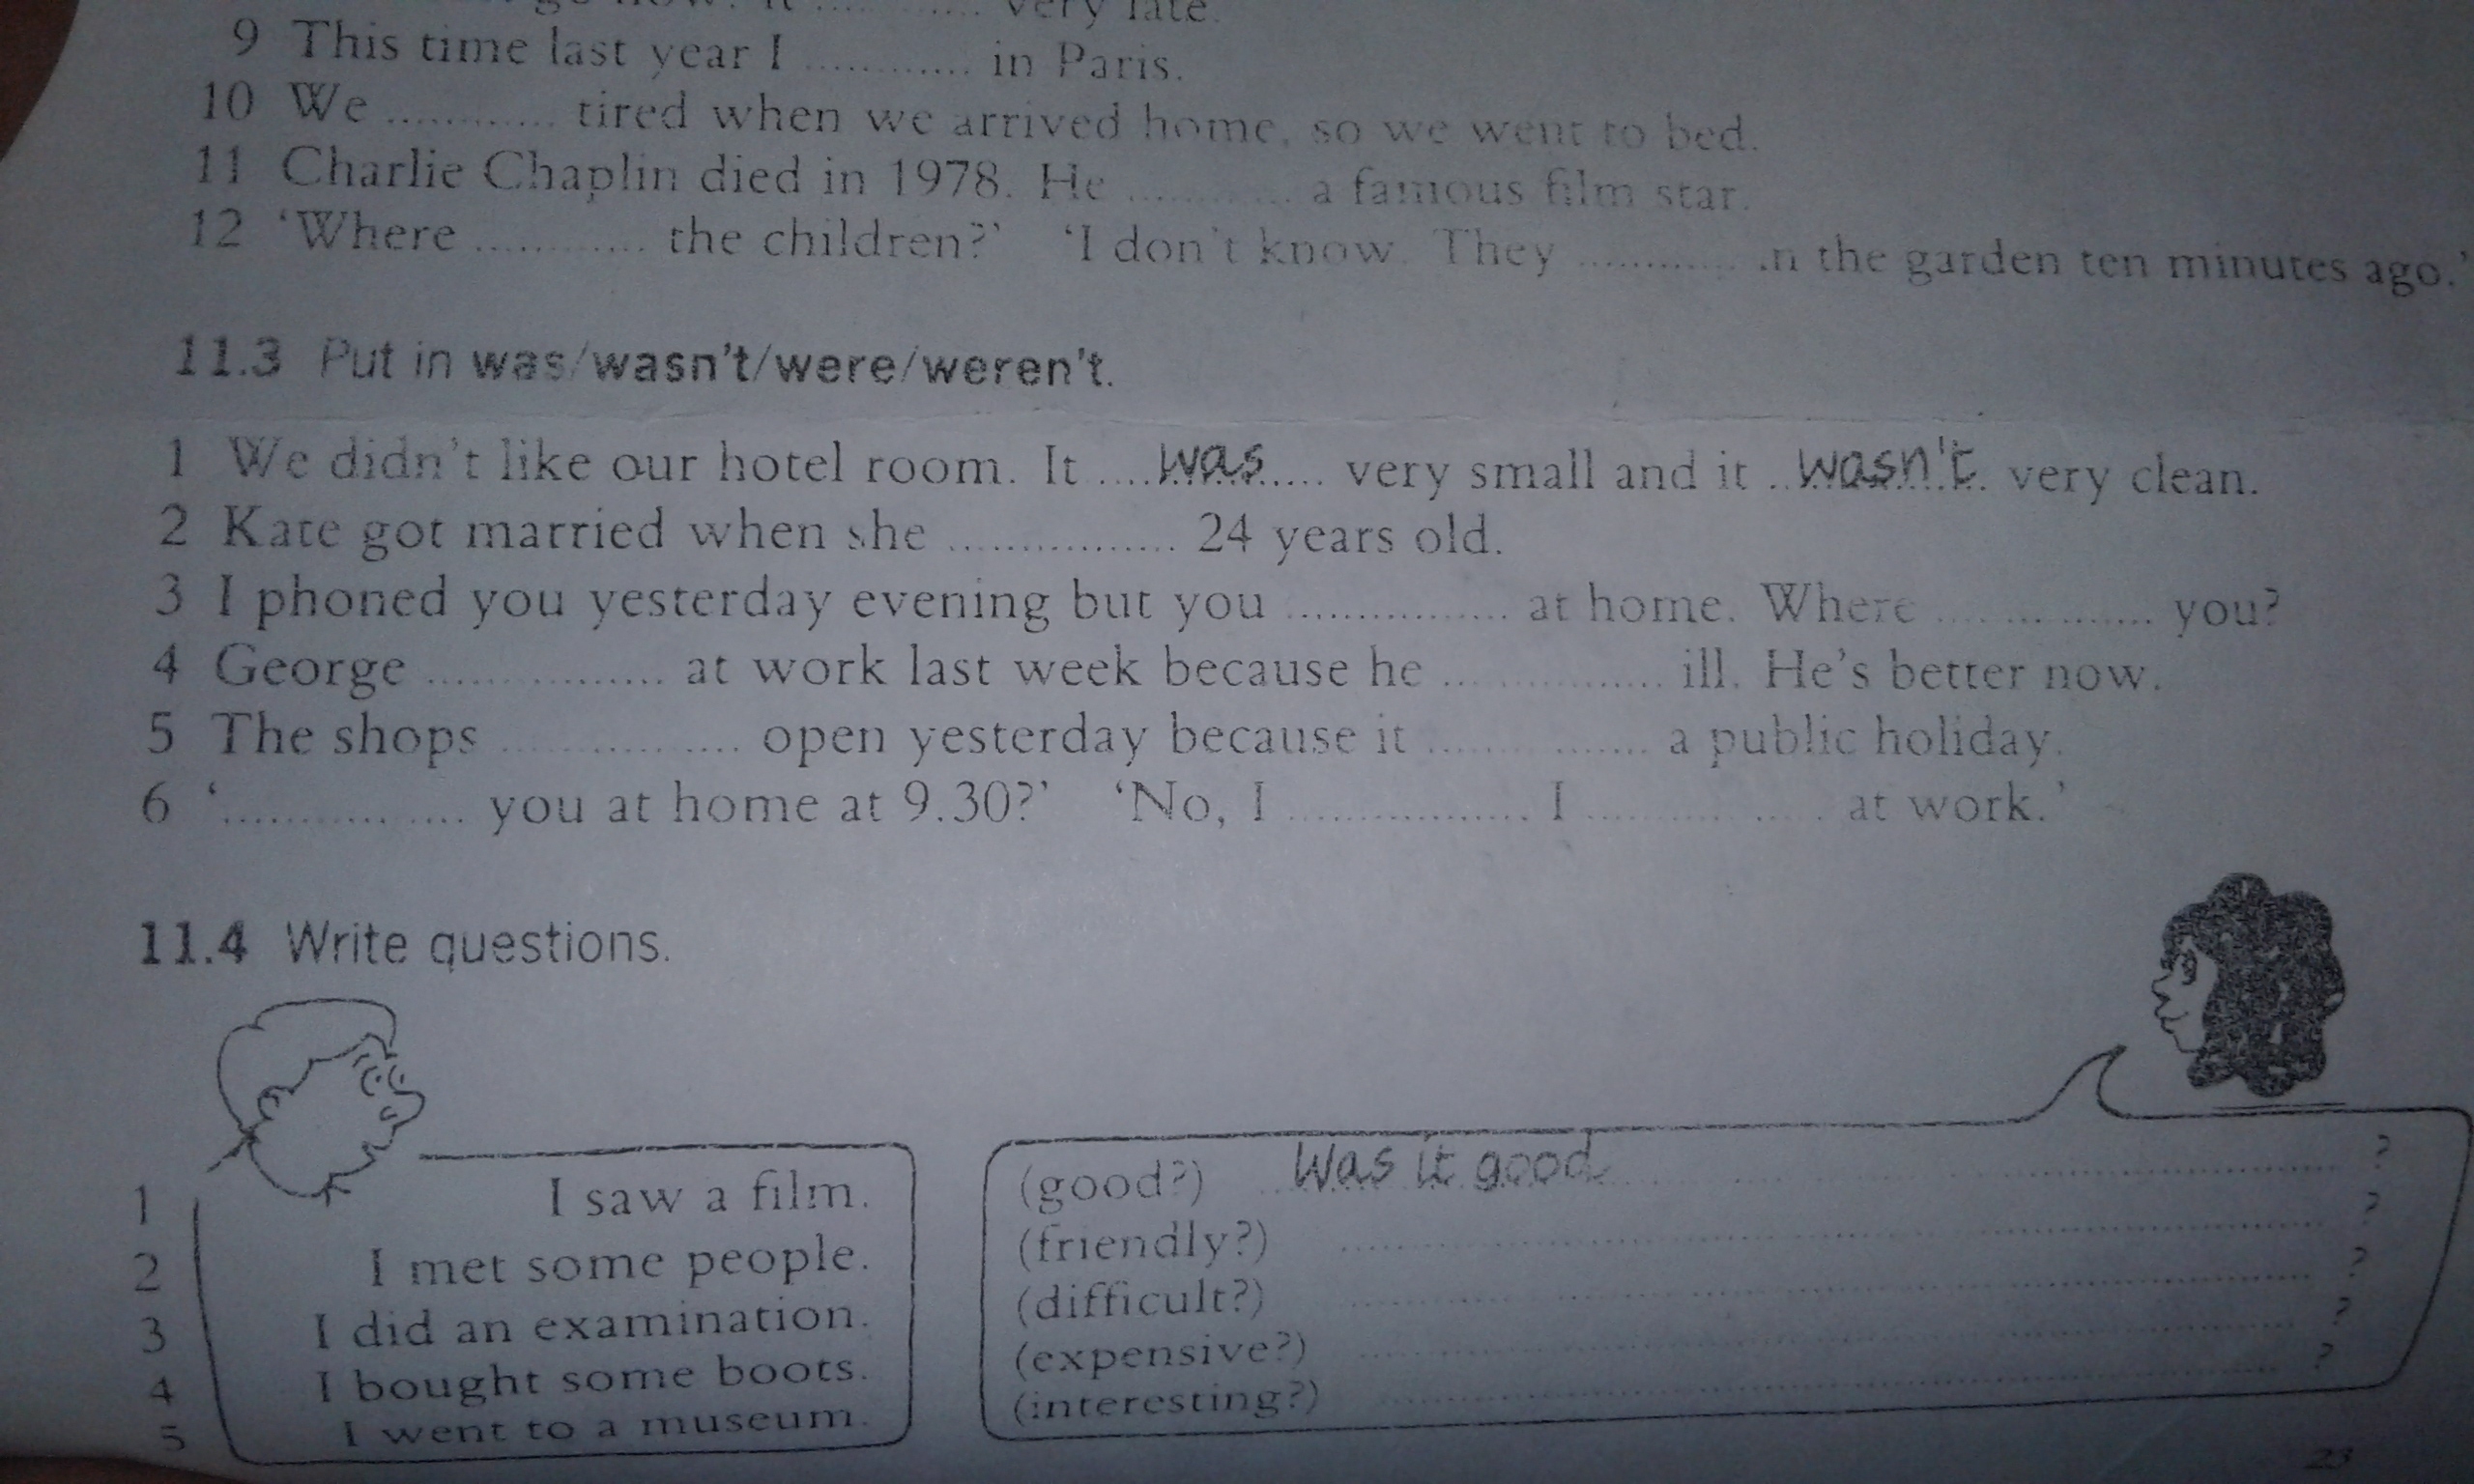 very late.
9 This time last year I ............ in Paris.
10 We ............ tired when we arrived home, so we went to bed.
11 Charlie Chaplin died in 1978. He ............ a famous film star.
12 ‘Where ............ the children?’ ‘I don't know. They ............ in the garden ten minutes ago.’
11.3 Put in was/wasn't/were/weren't.
1 We didn't like our hotel room. It ....was.... very small and it ..wasn't.. very clean.
2 Kate got married when she ................ 24 years old.
3 I phoned you yesterday evening but you ................ at home. Where ................ you?
4 George ................ at work last week because he ................ ill. He's better now.
5 The shops ................ open yesterday because it ................ a public holiday.
6 ‘................ you at home at 9.30?’ ‘No, I ................. I ................ at work.’
11.4 Write questions.
1 I saw a film. (good?) Was it good ?
2 I met some people. (friendly?) ................ ?
3 I did an examination. (difficult?) ................ ?
4 I bought some boots. (expensive?) ................ ?
5 I went to a museum. (interesting?) ................ ?
23